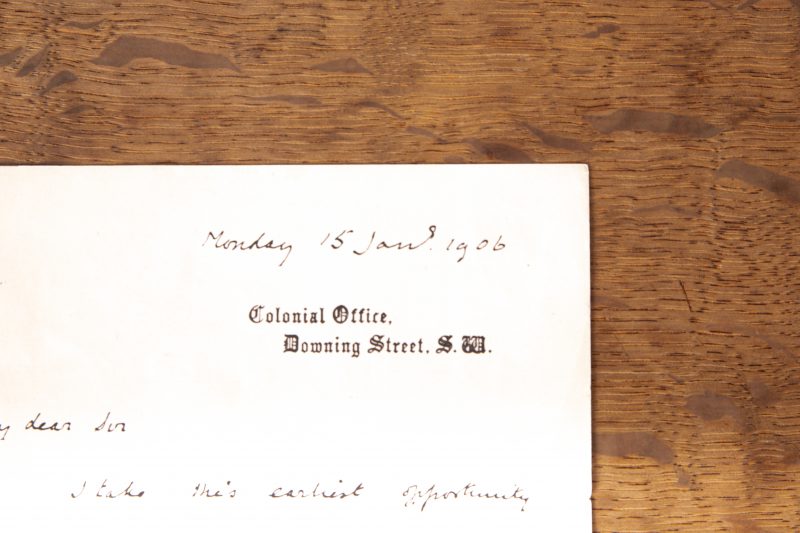 Monday 15 Jany. 1906
Colonial Office,
Downing Street, S.W.
y dear Sir
I take this earliest opportunity